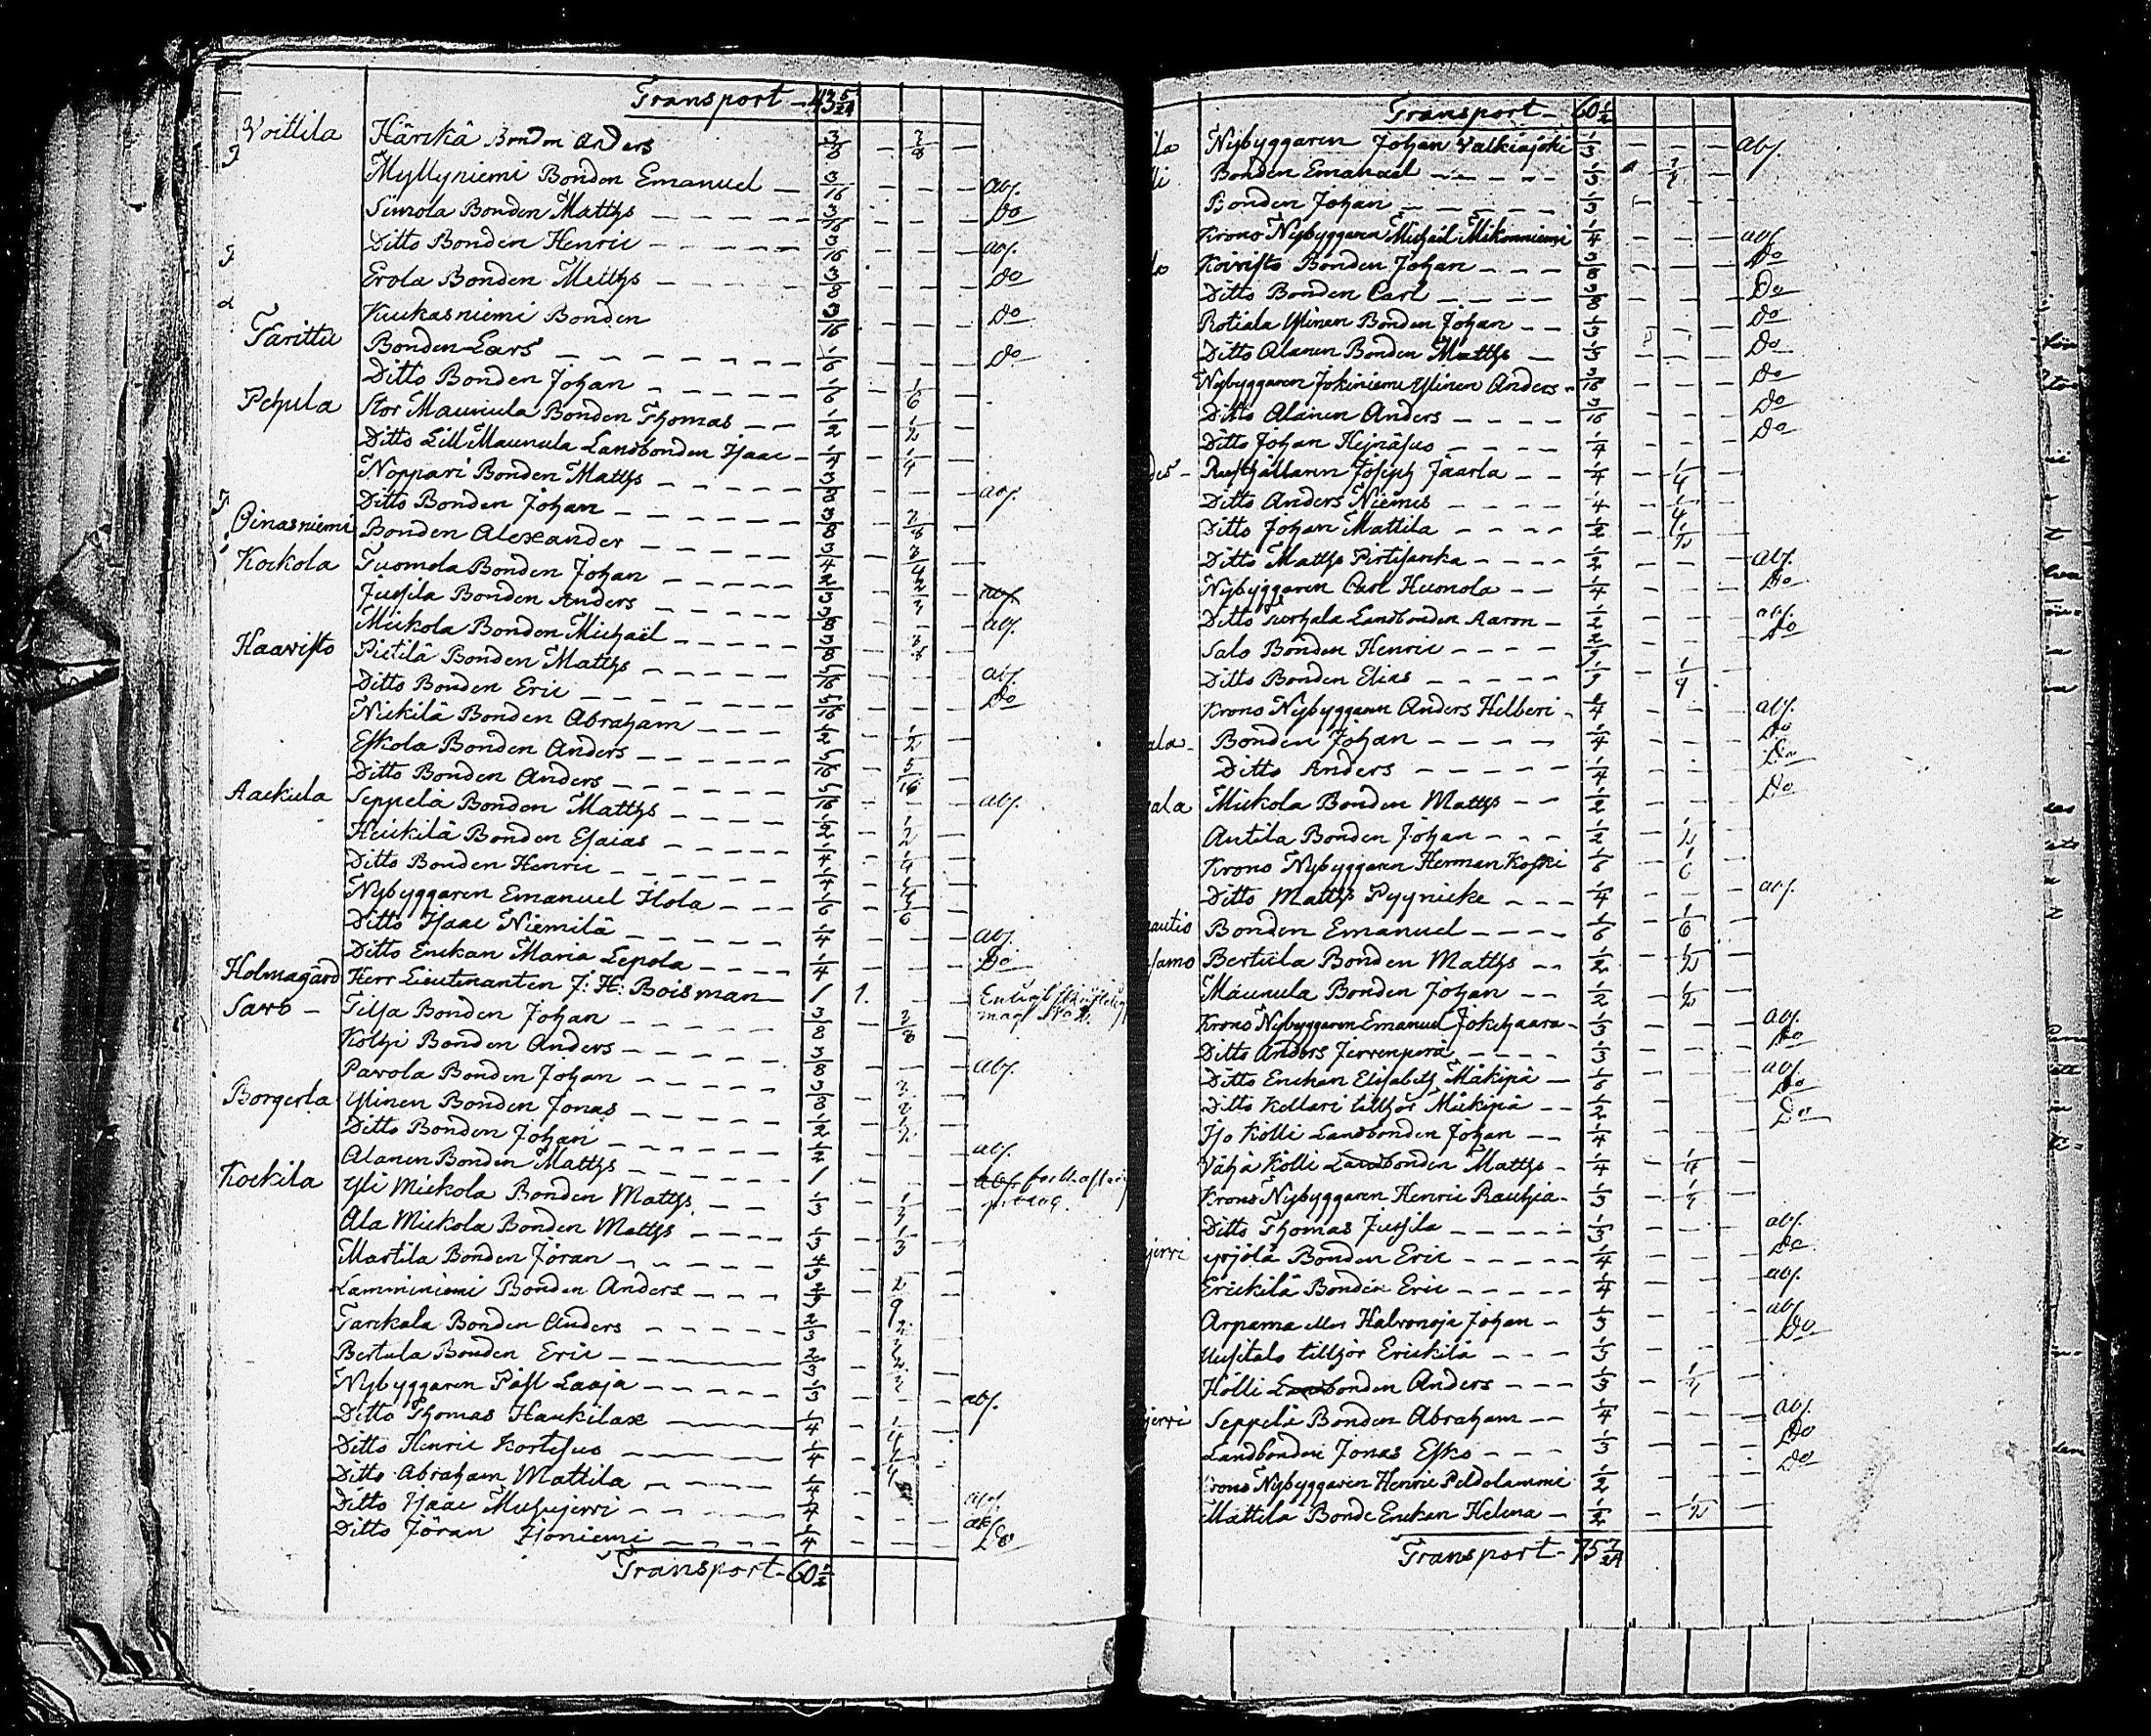 Transport - 43 5/24
Woittila Härkä Bonden Anders 3/8 - 3/8 -
Myllyniemi Bonden Emanuel 3/16 - - - abs.
Simola Bonden Matths 3/16 - - - Do
Ditto Bonden Henric 3/16 - - - abs.
Erola Bonden Matths 3/8 - - - Do
Kuukasniemi Bonden 3/16 - - - Do
Tarittu Bonden Lars 1/6 - - - Do
Ditto Bonden Johan 1/6 - 1/6 -
Pehula Stor Maunula Bonden Thomas 1/2 - 1/2 -
Ditto Lill Maunula Landbonden Isaac 1/4 - 1/4 -
Noppari Bonden Matths 3/8 - - - abs.
Ditto Bonden Johan 3/8 - 3/8 -
Oinasniemi Bonden Alexander 3/4 - 3/4 -
Kockola Tuomola Bonden Johan 2/3 2/3
Jussila Bonden Anders 3/8 abs
Mickola Bonden Michaël 3/8 - - abs.
Haaristo Pietilä Bonden Matths
Ditto Bonden Eric 5/16 - - - abs.
Nickilä Bonden Abraham 5/16 Do
Eskola Bonden Anders 1/2 - 1/2
Ditto Bonden Anders 5/16 5/16
Aackula Seppelä Bonden Matths 5/16 - - - abs.
Heickilä Bonden Esaias 1/2 - 1/2 -
Ditto Bonden Henric 1/4 - 1/4 -
Nybyggaren Emanuel Ilola 1/6 - 1/6
Ditto Isaac Niemilä 1/4 - - - abs.
Ditto Enckan Maria Lepola 1/4 - - - Do
Holmagård Herr Lieutenanten J: H: Boisman 1 1. - -
Saro - Tilsa Bonden Johan 3/8 - 3/8 -
Kolhi Bonden Anders 3/8 - - - abs.
Parola Bonden Johan 3/8
Borgerla Ylinen Bonden Jonas 1/2 1/2
Ditto Bonden Johan 1/2 - - - abs.
Alanen Bonden Matths 1
Kockila Yli Mickola Bonden Matths 1/3 - 1/3 -
Ala Mickola Bonden Matths 1/3 1/3 -
Martila Bonden Jöran
Lamminiemi Bonden Anders 2/9 - 2/9 -
Tarckala Bonden Anders 2/3
Bertula Bonden Eric 2/3
Nybyggaren Påhl Laaja 1/3 - - - abs.
Ditto Thomas Haukilax 1/4 - 1/4 -
Ditto Henric Kortesuo 1/4 - 1/4
Ditto Abraham Mattila 1/4
Ditto Isaac 1/4 - - - abs.
Ditto Jöran Isoniemi 1/4 - - - Do
Transport - 60 1/2
Transport - 60 1/2
Nybyggaren Johan Valkiajoki 1/3 - - - abs.
Bonden Emanuel 1/3
Bonden Johan 1/3 - - -
Krono Nybyggaren Michaël Mikonniemi 1/4 - - - abs.
Koivisto Bonden Johan 3/8 - - - Do
Ditto Bonden Carl 3/8 - - - Do
Rotiala Ylinen Bonden Johan 1/3 Do
Ditto Alanen Bonden Matths 1/3 - - - Do
Nybyggaren Jokiniemi Ylinen Anders 3/16 - - - Do
Ditto Alanen Anders 3/16 - - - Do
Ditto Johan Heinäsuo 1/4 - - - Do
Rusthållaren Joseph Jaarla 1/4 - 1/4 -
Ditto Anders Niemis 1/4 - 1/4 -
Ditto Johan Mattila 1/2 - 1/2 -
Ditto Matths Pirtisanka 1/2 - - - abs.
Nybyggaren Carl Huonola 1/4 - - - Do
Ditto Landbonden Aaron 1/2 - - - abs.
Salo Bonden Henric Do
Ditto Bonden Elias
Krono Nybyggaren Anders Helberi 1/4 - - - abs.
Bonden Johan 1/4 - - - Do
Ditto Anders 1/4 - - - Do
Mickola Bonden Matths 1/2 - - - Do
Antila Bonden Johan 1/2 - 1/2 -
Krono Nybyggaren Herman Koski 1/6 - 1/6 -
Ditto Matths Pyynicke 1/4 - - - abs.
Bonden Emanuel 1/6 - 1/6 -
Bertula Bonden Matths 1/2 - 1/2 -
Maunula Bonden Johan 1/2 - 1/2 -
Krono Nybyggaren Emanuel Jokihaara 1/3 - - - abs.
Ditto Anders Jervenperä 1/3 - - - Do
Ditto Enckan Elisabeth Mäkipä 1/6 - - - abs.
Ditto Kellari tillhör Mäkipä 1/2 - - - Do
Iso Kölli Landbonden Johan 1/4 - - - Do
Vähä Kölli Landbonden Matths 1/4 - 1/4 -
Krono Nybyggaren Henric Rauhia 1/3 - 1/3 -
Ditto Thomas Jussila 1/3 - - - abs.
Yrjölä Bonden Eric 1/4 - - - Do
Erickilä Bonden Eric 1/4 - - - abs.
Arpama eller Halvonoja Johan 1/3 - - - abs.
Uusitalo tillhör Erickilä 1/3 - - - Do
Hölli Landbonden Anders 1/3 - 1/3 -
Seppelä Bonden Abraham 1/4 - - - abs.
Landbonden Jonas Esko 1/3 - - - Do
Krono Nybyggaren Henric Peldolammi 1/2 - - - Do
Mattila Bonde Enckan Helena 1/2 - 1/2 -
Transport - 75 7/24